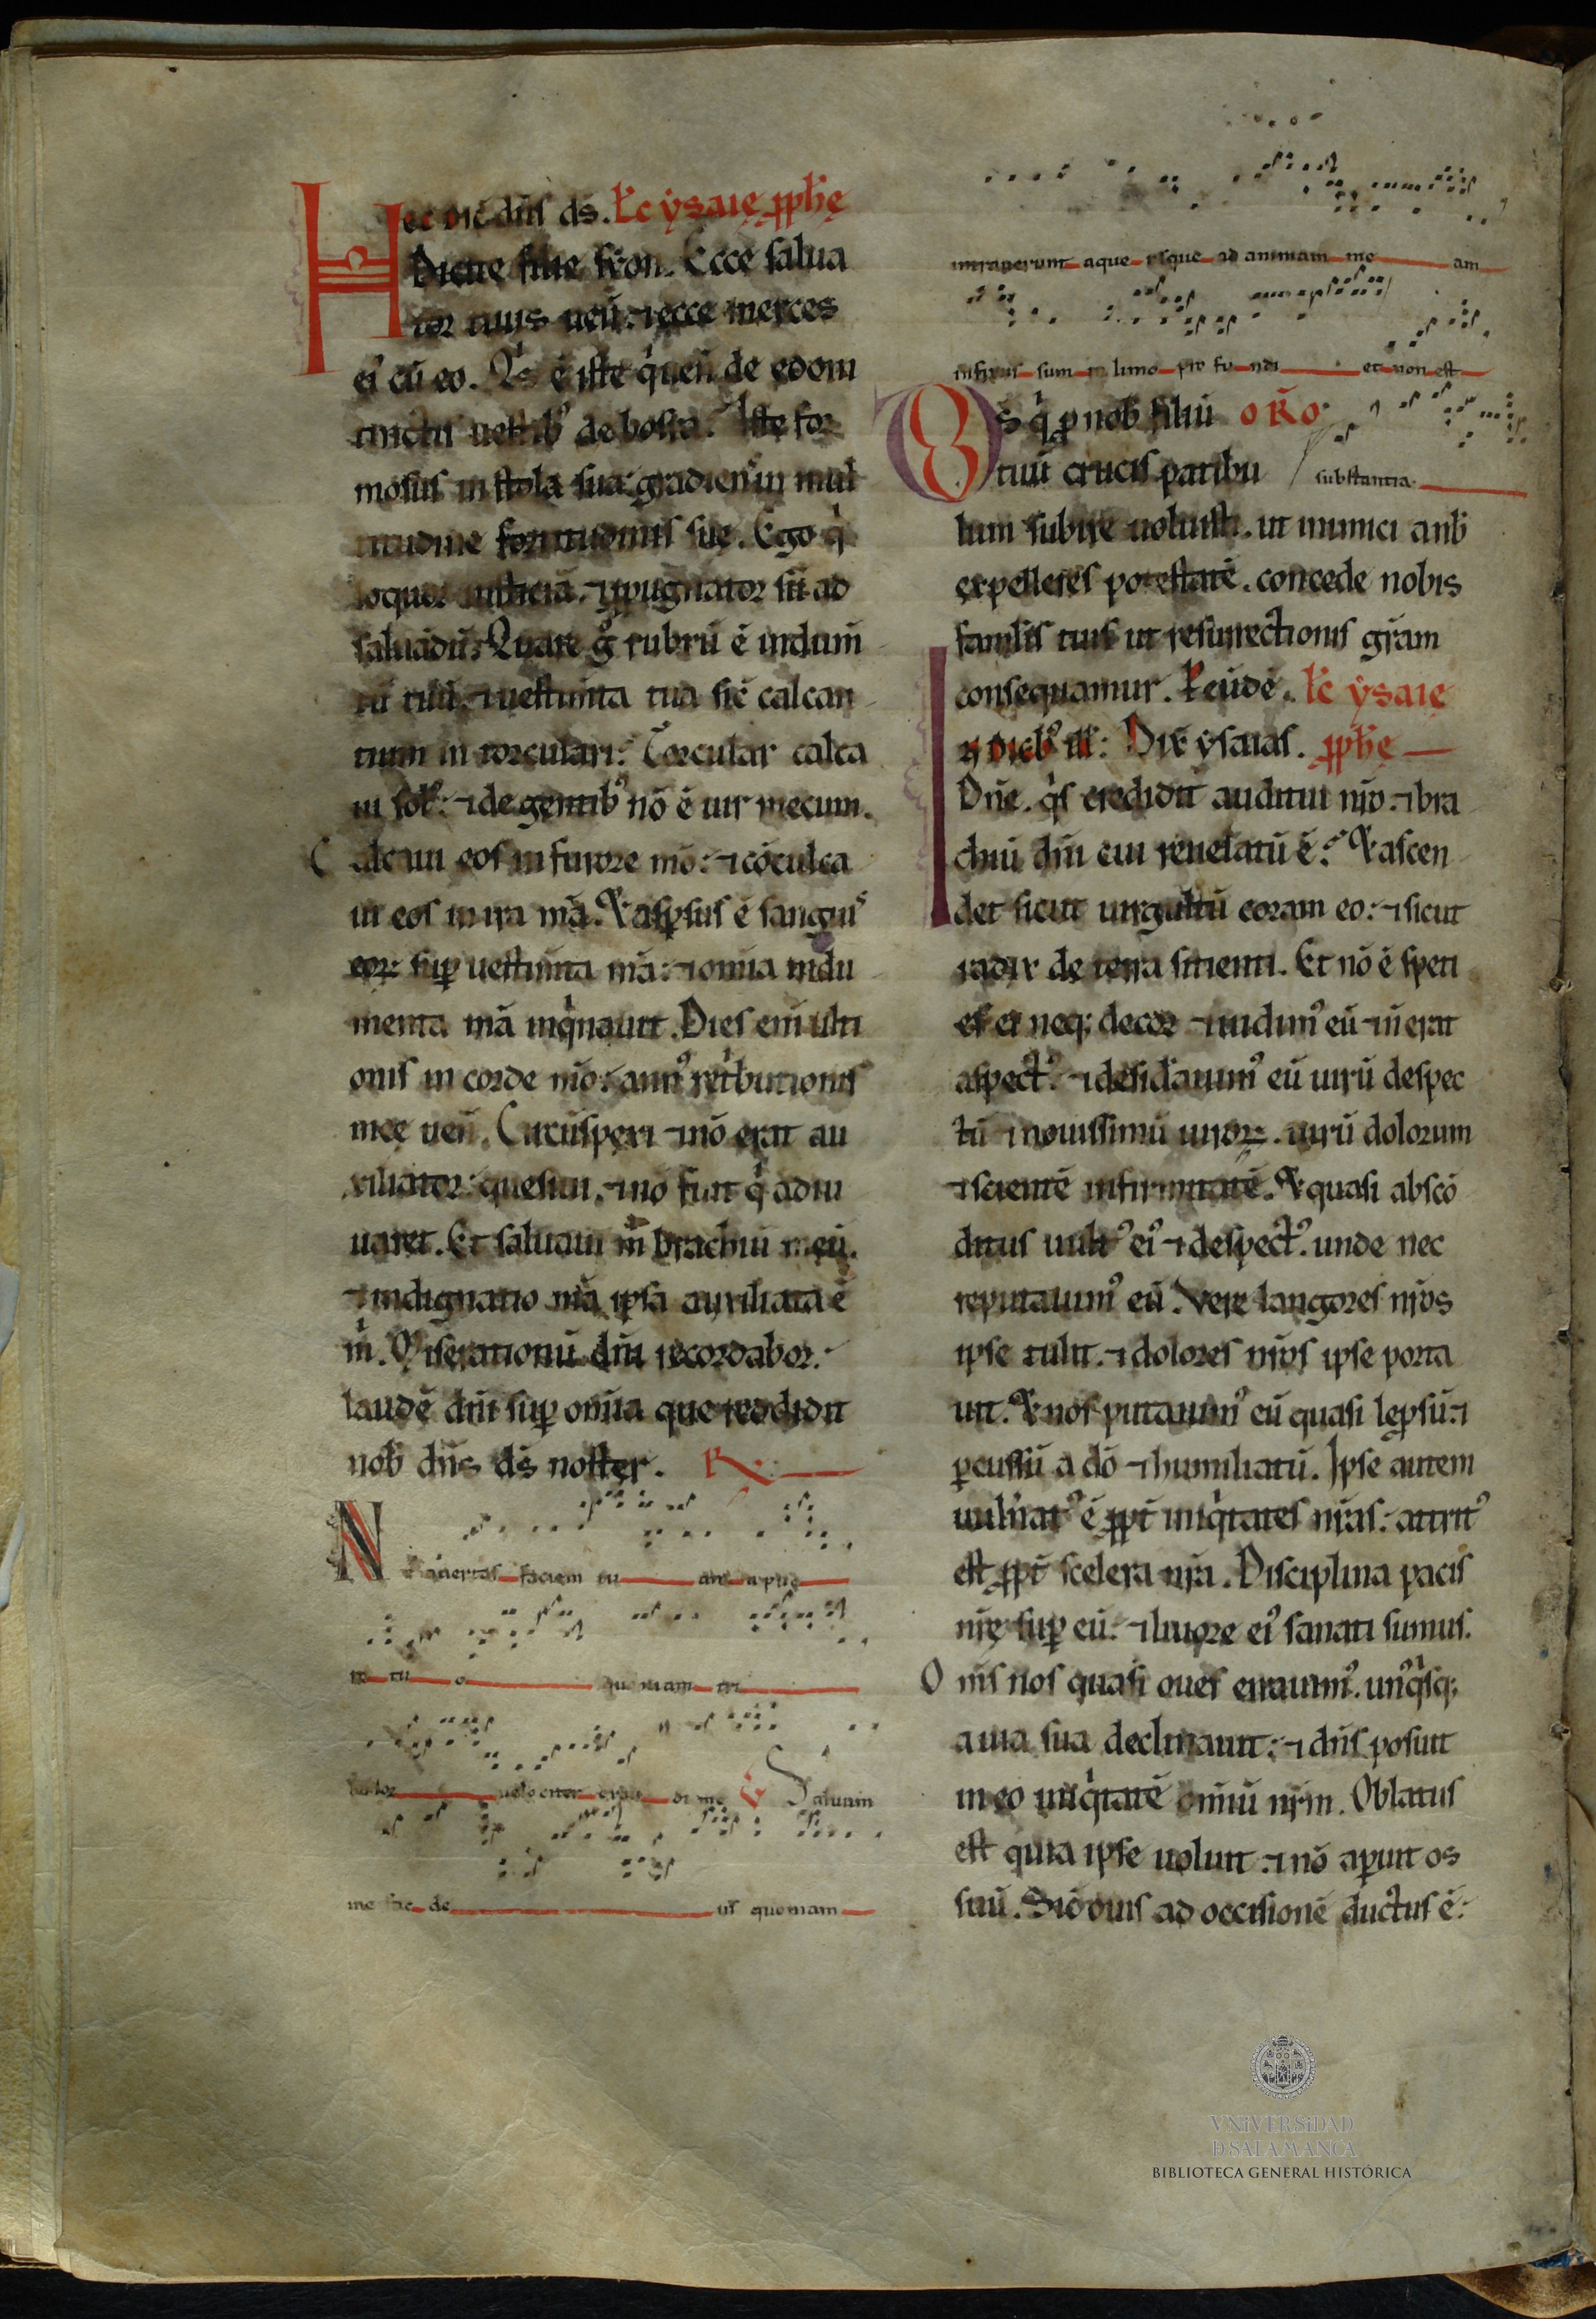 Hec dic̄ dn̄s ds̄. Łc ẏsaię ꝓph̄ę
Dicite filie sẏon. Ecce salua
tor tuus uen̄: ⁊ ecce merces
ei᾿ cū eo. Qͥs ē iste qͥ uen̄ de edom
tinctis uestib᾿ de bosra. Iste for
mosus in stola sua: gradiens in mul
titudine fortitudinis sue. Ego qͥ
loquor iusticiā. ⁊ ꝓpugnator sū ad
saluādū. Quare gͦ rubrū ē indum̄
tū tuū: ⁊ uestim̄ta tua sic̄ calcan
tium in torculari. Torcular calca
ui sol᾿: ⁊ de gentib᾿ nō ē uir mecum.
Calcaui eos in furore mō: ⁊ cōculca
ui eos in ira mā. ⁊ asꝑsus ē sanguis
eoꝝ suꝑ uestim̄ta mā: ⁊ omīa indu
menta mā inqͥnaui. Dies eni ulti
onis in corde mō: ann᾿ retͥbutionis
mee uen̄. Circūspexi ⁊ nō erat au
xiliator: quesiui. ⁊ nō fuit qͥ adiu
uaret. Et saluauit m̄ brachiū meū.
⁊ indignatio mā ipsa auxiliata ē
m̄. Miserationū dn̄i recordabor.
laudē dn̄i suꝑ omīa que reddidit
nob̄ dn̄s ds̄ noster. R
Ne auertas faciem tu am a pue
ro tu o quoniam tri
bulor uelociter exau di me Saluum
me fac de us quoniam
intrauerunt aque usque ad animam me am
infixus sum in limo pro fu ndi et non est
substantia.
Ds̄ qͥ ꝓ nob̄ filiū ORO
tuū crucis patibu
lum subire uoluisti. ut inimici a nb̄
expelleres potestatē. concede nobis
famul̄is tuis ut resurrectionis grām
consequamur. P̄ eūdē. Łc̄ ẏsaię
In dieb᾿ ill̄: Dix̄ ẏsaias. ꝓph̄ę
Dn̄e. qͥs credidit auditui nr̄o. ⁊ bra
chiū dn̄i cui reuelatū ē. ⁊ ascen
det sicut uirgultū coram eo: ⁊ sicut
radix de terra sitienti. Et nō ē speti
es ei neq; decor ⁊ uidim᾿ eū ⁊ n̄ erat
aspect᾿. ⁊ desid̄auim᾿ eū uirū despec
tū ⁊ nouissimū uiroꝝ. uirū dolorum
⁊ scientē infirmitatē. ⁊ quasi abscō
ditus uult᾿ ei᾿ ⁊ despect᾿. unde nec
reputauim᾿ eū. Vere langores nr̄os
ipse tulit. ⁊ dolores nr̄os ipse porta
uit. ⁊ nos putauim᾿ eū quasi leprosū: ⁊
ꝑcussū a dō ⁊ humiliatū. Ipse autem
uuln̄at᾿ ē ꝓpt̄ iniqͥtates nr̄as: attrit᾿
est ꝓpt̄ scelera nr̄a. Disciplina pacis
nr̄ę suꝑ eū: ⁊ liuore ei᾿ sanati sumus.
Om̄s nos quasi oues errauim᾿. un᾿qͥsq;
a uia sua declinauit: ⁊ dn̄s posuit
in eo iniqͥtatē omniū nr̄m. Oblatus
est quia ipse uoluit ⁊ nō aꝑuit os
suū. Sic̄ ouis ad occisionē ductus ē:
VNiVERSiDAD
D SALAMANCA
BIBLIOTECA GENERAL HISTÓRICA